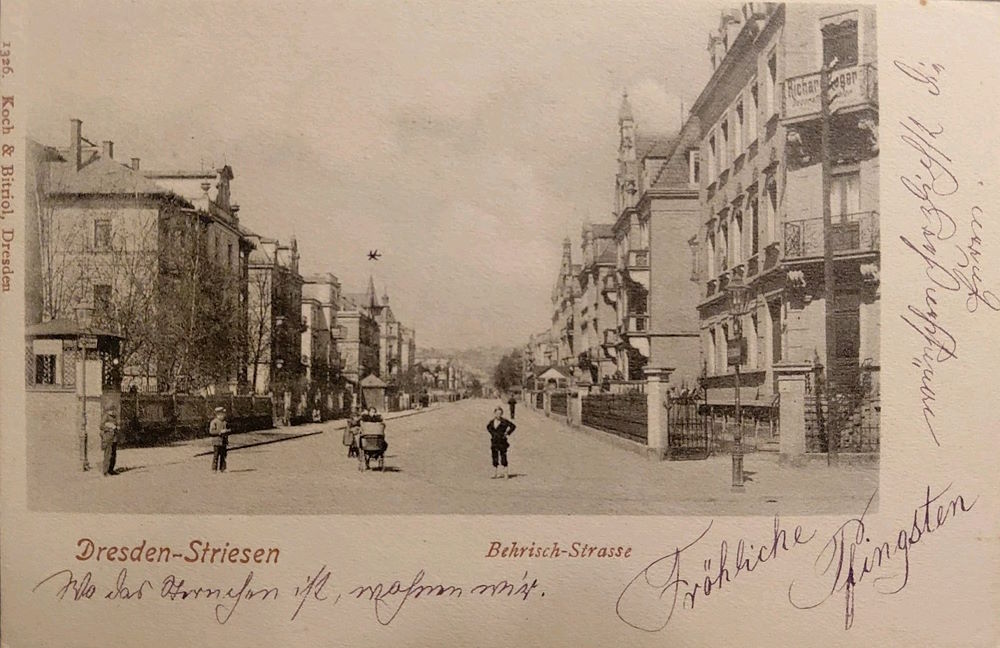 1326. Koch & Bitriol, Dresden
Richar
Dresden-Striesen
Behrisch-Strasse
Wo das Sternchen ist, wohnen wir.
Fröhliche
Pfingsten